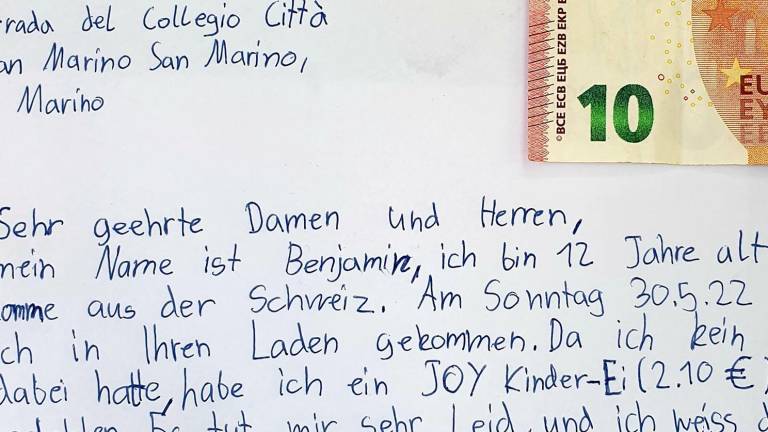 rada del Collegio Città
an Marino San Marino,
Marino
©BCE ECB ЕЦБ EZB EKP
10
EU
EY
Sehr geehrte Damen und Herren,
mein Name ist Benjamin, ich bin 12 Jahre alt
omme aus der Schweiz. Am Sonntag 30.5.22
ch in Ihren Laden gekommen. Da ich kein
dabei hatte, habe ich ein JOY Kinder-Ei (2.10 €)
Es tut mir sehr Leid, und ich weiss d